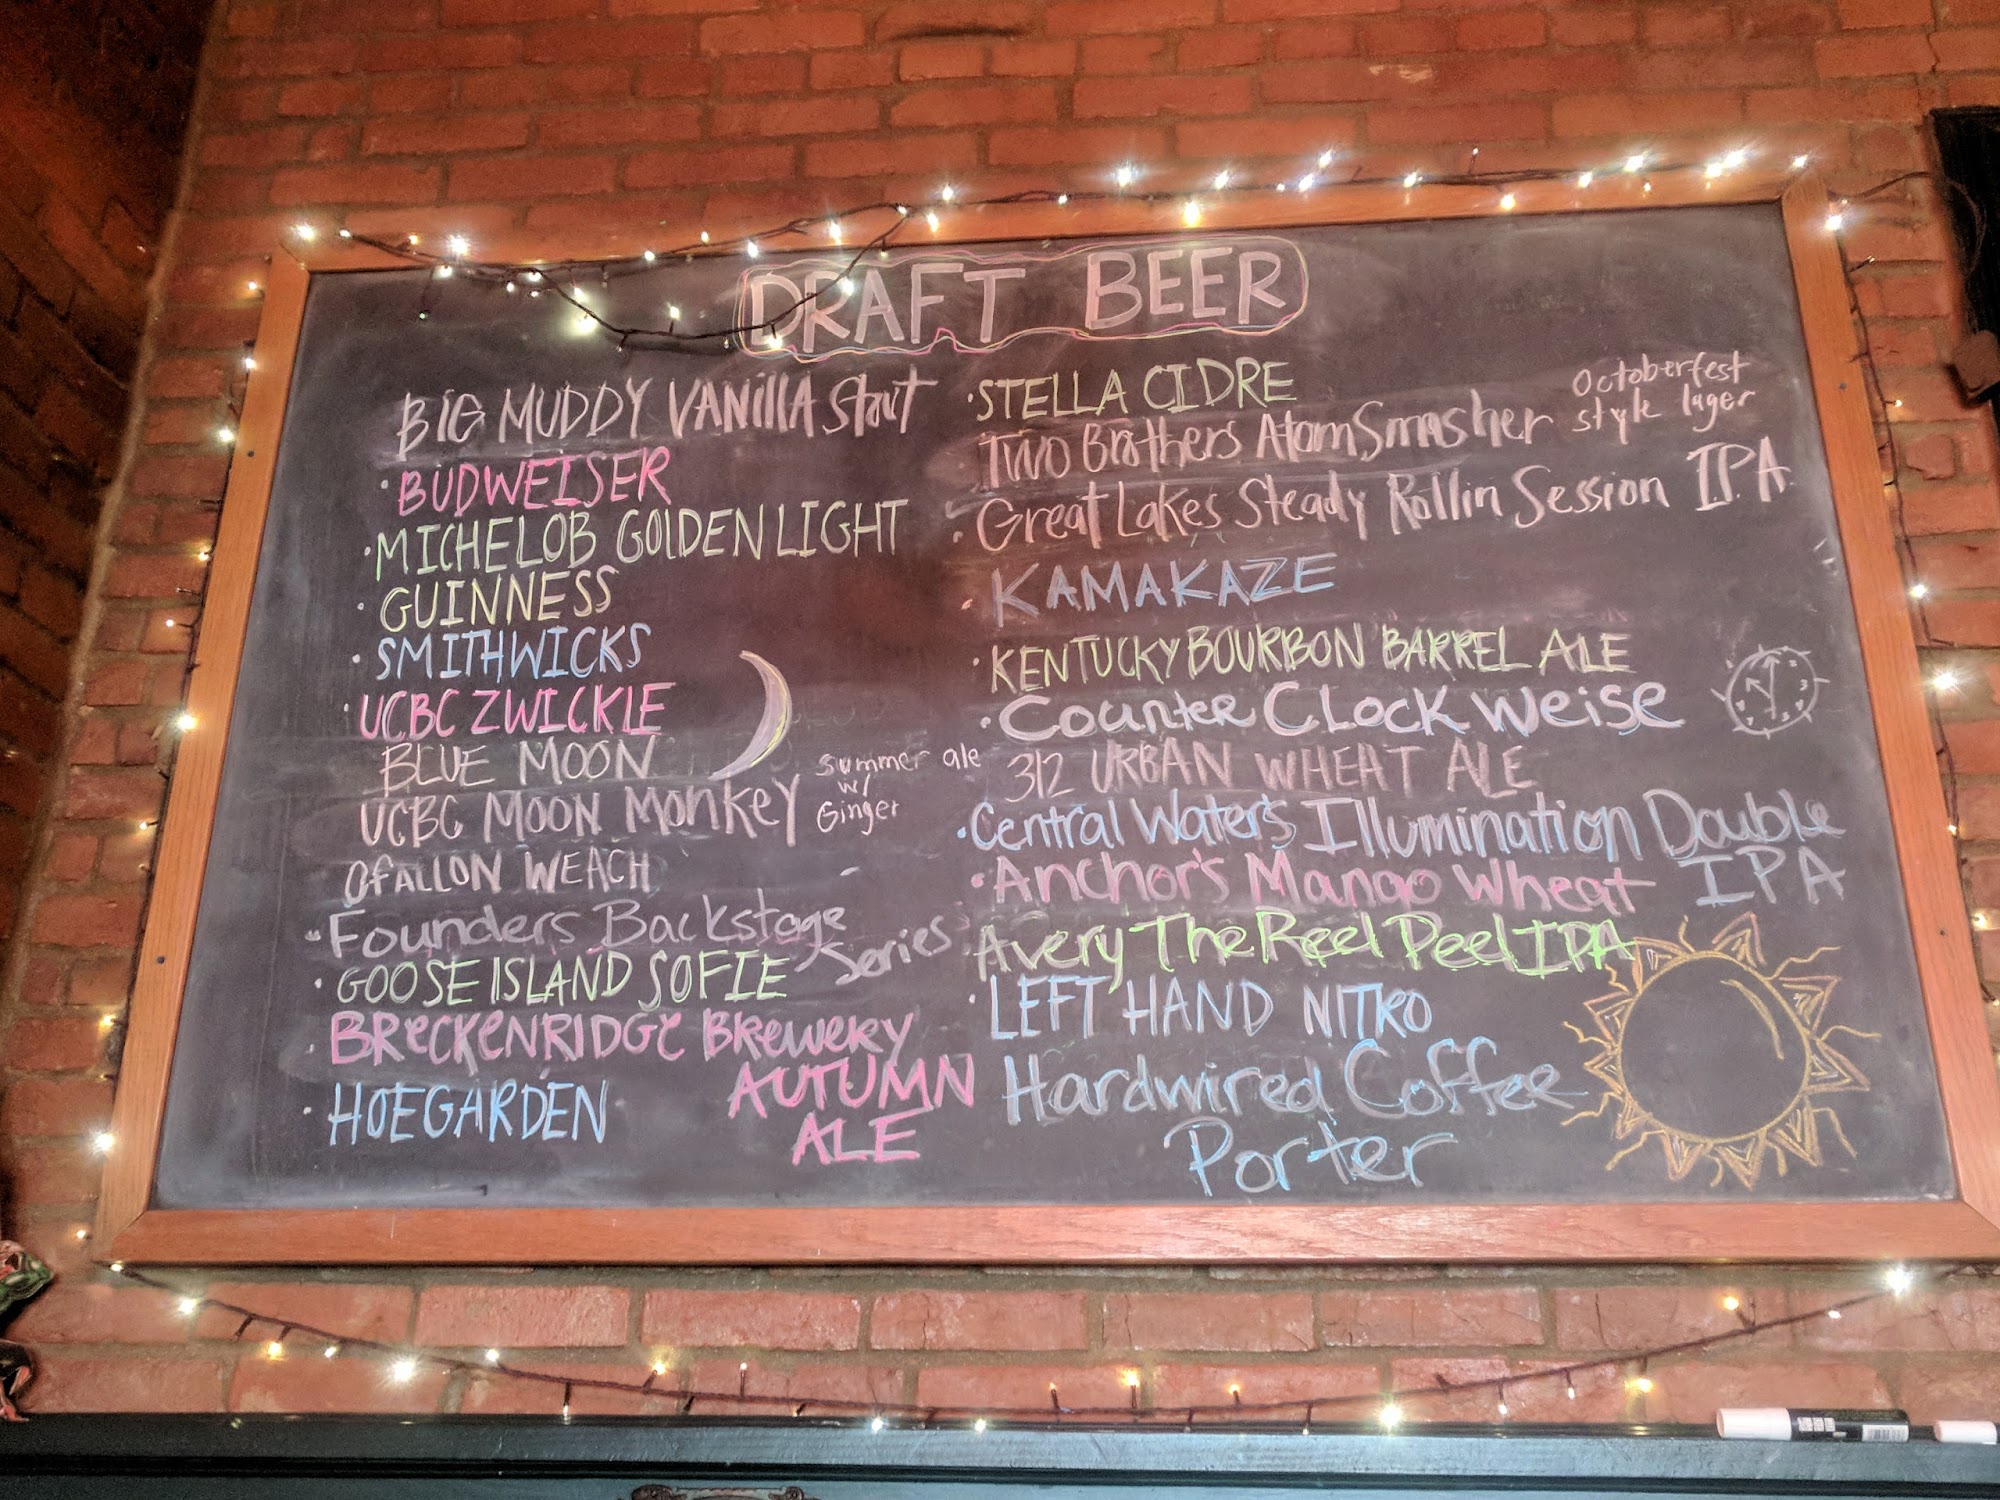 DRAFT BEER
BIG MUDDY VANillA Stout
· BUDWEISER
· MICHELOB GOLDEN LIGHT
· GUINNESS
· SMITHWICKS
· UCBC ZWICKLE
BLUE MOON
UCBC MOON MonKEY summer ale
w/
Ginger
OFALLON WEACH
· Founders Backstage
Series
· GOOSE ISLAND SOFIE
· BRECKENRIDGE BREWERY
AUTUMN
ALE
· HOEGARDEN
· STELLA CIDRE
Two Brothers AtomSmasher Octoberfest
style lager
· Great Lakes Steady Rollin Session IPA
· KAMAKAZE
· KENTUCKY BOURBON BARREL ALE
· Counter CLock Weise
312 URBAN WHEAT ALE
· Central Water's Illumination Double
IPA
· Anchor's Mango Wheat
· Avery The Reel Peel IPA
· LEFT HAND NITRO
Hardwired Coffee
Porter